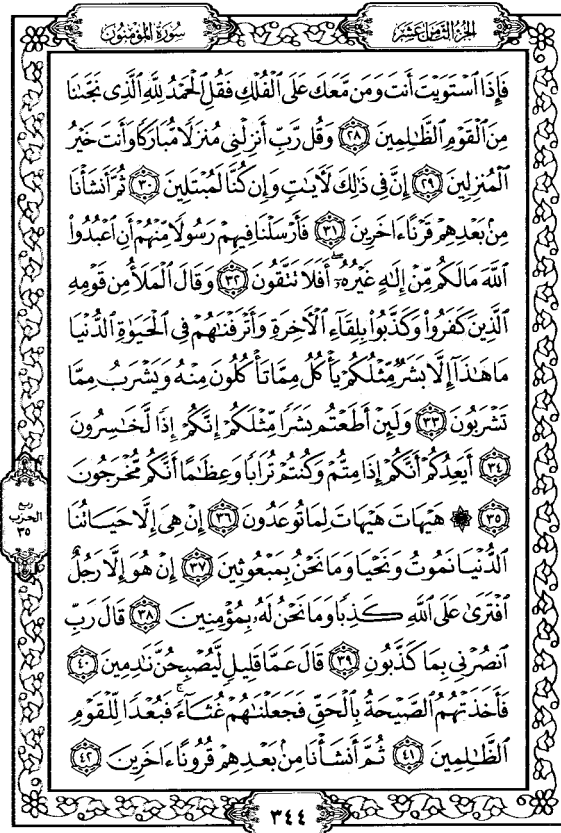 الجُزءُ الثَّامِنَ عَشَرَ
سُورَةُ المُؤْمِنُونَ
فَإِذَا ٱسْتَوَيْتَ أَنتَ وَمَن مَّعَكَ عَلَى ٱلْفُلْكِ فَقُلِ ٱلْحَمْدُ لِلَّهِ ٱلَّذِى نَجَّىٰنَا
مِنَ ٱلْقَوْمِ ٱلظَّٰلِمِينَ ٢٨ وَقُل رَّبِّ أَنزِلْنِى مُنزَلًا مُّبَارَكًا وَأَنتَ خَيْرُ
ٱلْمُنزِلِينَ ٢٩ إِنَّ فِى ذَٰلِكَ لَـَٔايَٰتٍ وَإِن كُنَّا لَمُبْتَلِينَ ٣٠ ثُمَّ أَنشَأْنَا
مِنۢ بَعْدِهِمْ قَرْنًا ءَاخَرِينَ ٣١ فَأَرْسَلْنَا فِيهِمْ رَسُولًا مِّنْهُمْ أَنِ ٱعْبُدُوا۟
ٱللَّهَ مَا لَكُم مِّنْ إِلَٰهٍ غَيْرُهُۥٓ ۖ أَفَلَا تَتَّقُونَ ٣٢ وَقَالَ ٱلْمَلَأُ مِن قَوْمِهِ
ٱلَّذِينَ كَفَرُوا۟ وَكَذَّبُوا۟ بِلِقَآءِ ٱلْـَٔاخِرَةِ وَأَتْرَفْنَٰهُمْ فِى ٱلْحَيَوٰةِ ٱلدُّنْيَا
مَا هَٰذَآ إِلَّا بَشَرٌ مِّثْلُكُمْ يَأْكُلُ مِمَّا تَأْكُلُونَ مِنْهُ وَيَشْرَبُ مِمَّا
تَشْرَبُونَ ٣٣ وَلَئِنْ أَطَعْتُم بَشَرًا مِّثْلَكُمْ إِنَّكُمْ إِذًا لَّخَٰسِرُونَ
٣٤ أَيَعِدُكُمْ أَنَّكُمْ إِذَا مِتُّمْ وَكُنتُمْ تُرَابًا وَعِظَٰمًا أَنَّكُم مُّخْرَجُونَ
٣٥ ۞ هَيْهَاتَ هَيْهَاتَ لِمَا تُوعَدُونَ ٣٦ إِنْ هِىَ إِلَّا حَيَاتُنَا
ٱلدُّنْيَا نَمُوتُ وَنَحْيَا وَمَا نَحْنُ بِمَبْعُوثِينَ ٣٧ إِنْ هُوَ إِلَّا رَجُلٌ
ٱفْتَرَىٰ عَلَى ٱللَّهِ كَذِبًا وَمَا نَحْنُ لَهُۥ بِمُؤْمِنِينَ ٣٨ قَالَ رَبِّ
ٱنصُرْنِى بِمَا كَذَّبُونِ ٣٩ قَالَ عَمَّا قَلِيلٍ لَّيُصْبِحُنَّ نَٰدِمِينَ ٤٠
فَأَخَذَتْهُمُ ٱلصَّيْحَةُ بِٱلْحَقِّ فَجَعَلْنَٰهُمْ غُثَآءً ۚ فَبُعْدًا لِّلْقَوْمِ
ٱلظَّٰلِمِينَ ٤١ ثُمَّ أَنشَأْنَا مِنۢ بَعْدِهِمْ قُرُونًا ءَاخَرِينَ ٤٢
ربع
الحزب
٣٥
٣٤٤